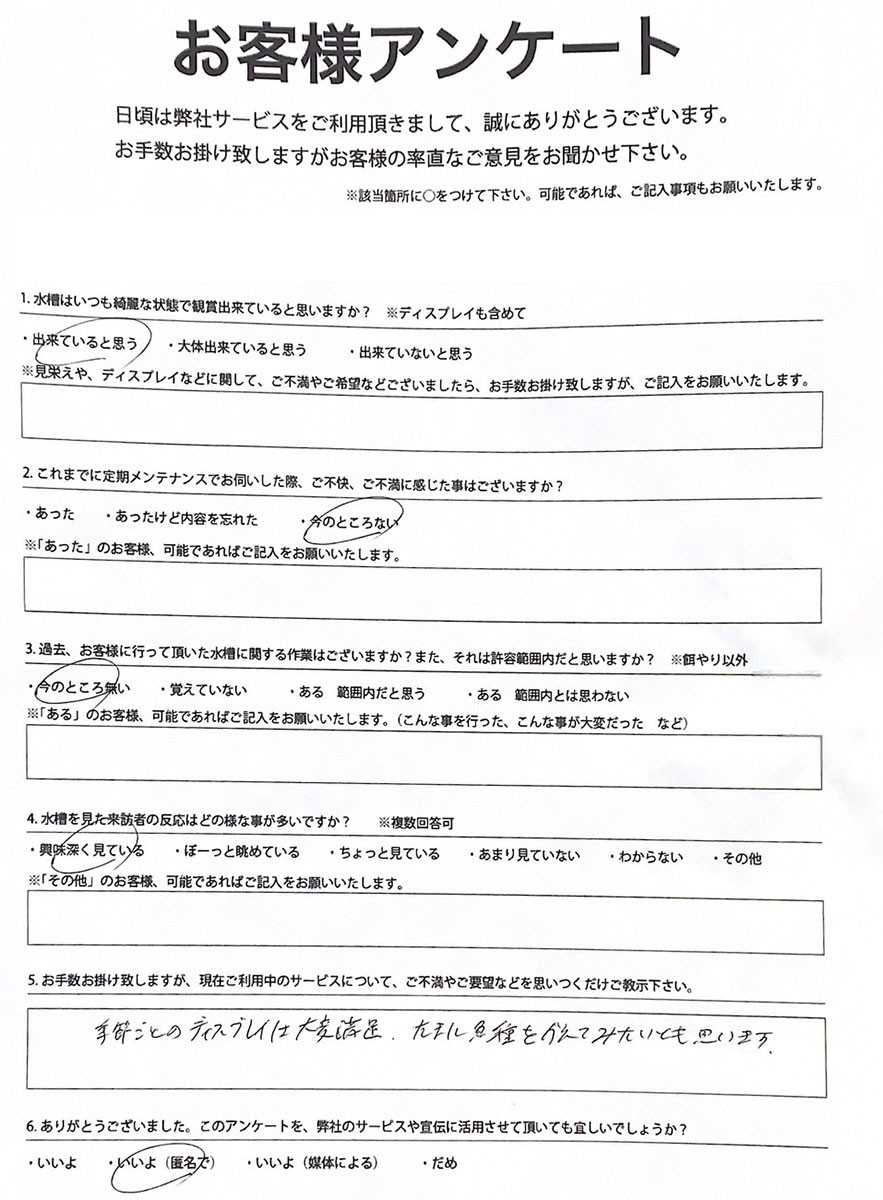 お客様アンケート
日頃は弊社サービスをご利用頂きまして、誠にありがとうございます。
お手数お掛け致しますがお客様の率直なご意見をお聞かせ下さい。
※該当箇所に○をつけて下さい。可能であれば、ご記入事項もお願いいたします。
1. 水槽はいつも綺麗な状態で観賞出来ていると思いますか？ ※ディスプレイも含めて
・出来ていると思う ・大体出来ていると思う ・出来ていないと思う
※見栄えや、ディスプレイなどに関して、ご不満やご希望などございましたら、お手数お掛け致しますが、ご記入をお願いいたします。
2. これまでに定期メンテナンスでお伺いした際、ご不快、ご不満に感じた事はございますか？
・あった ・あったけど内容を忘れた ・今のところない
※「あった」のお客様、可能であればご記入をお願いいたします。
3. 過去、お客様に行って頂いた水槽に関する作業はございますか？また、それは許容範囲内だと思いますか？ ※餌やり以外
・今のところ無い ・覚えていない ・ある 範囲内だと思う ・ある 範囲内とは思わない
※「ある」のお客様、可能であればご記入をお願いいたします。（こんな事を行った、こんな事が大変だった など）
4. 水槽を見た来訪者の反応はどの様な事が多いですか？ ※複数回答可
・興味深く見ている ・ぼーっと眺めている ・ちょっと見ている ・あまり見ていない ・わからない ・その他
※「その他」のお客様、可能であればご記入をお願いいたします。
5. お手数お掛け致しますが、現在ご利用中のサービスについて、ご不満やご要望などを思いつくだけご教示下さい。
季節ごとのディスプレイは大変満足。たまに魚種をかえてみたいとも思います。
6. ありがとうございました。このアンケートを、弊社のサービスや宣伝に活用させて頂いても宜しいでしょうか？
・いいよ ・いいよ（匿名で） ・いいよ（媒体による） ・だめ